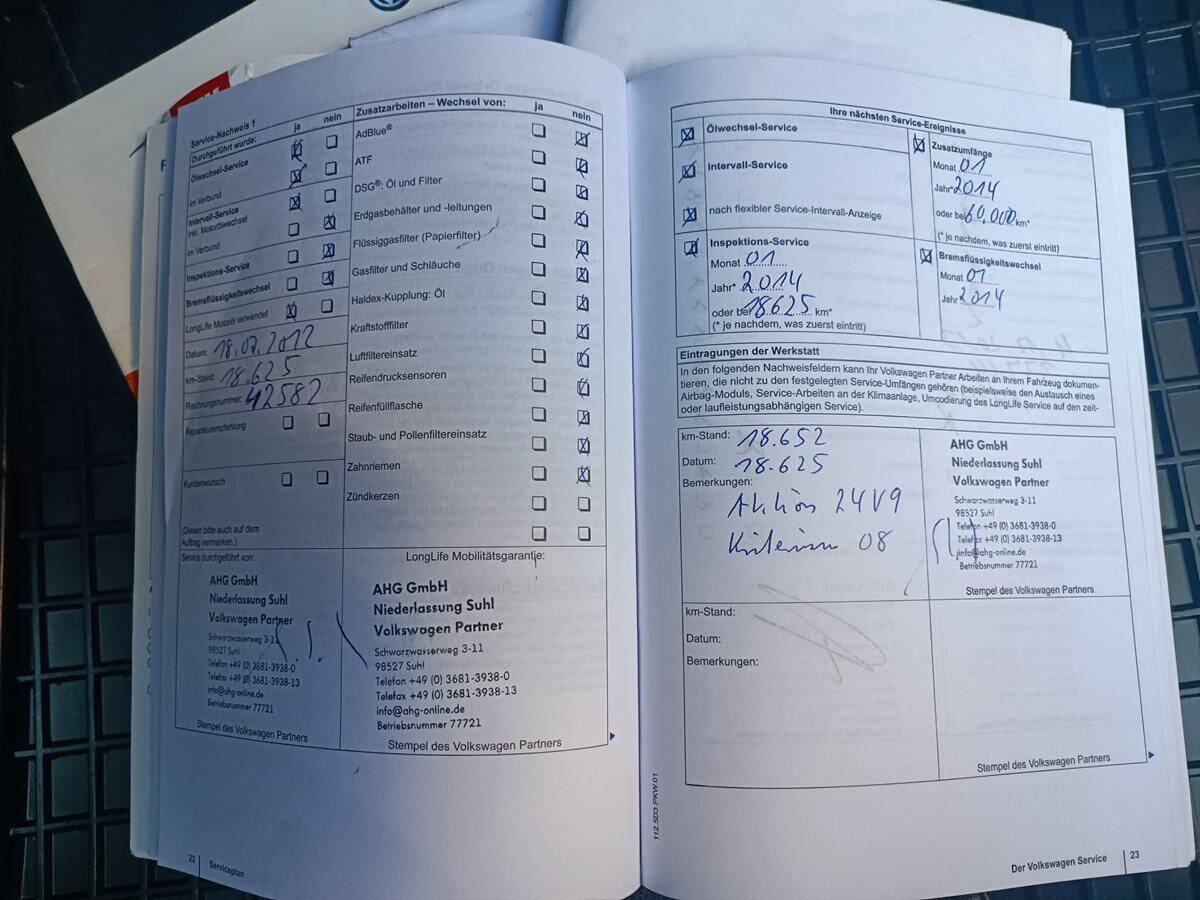 Service-Nachweis 1
Durchgeführt wurde: ja nein
Ölwechsel-Service
im Verbund
Intervall-Service
inkl. Motorölwechsel
im Verbund
Inspektions-Service
Bremsflüssigkeitswechsel
LongLife Motoröl verwendet
Datum: 18.07.2012
km-Stand: 18.625
Rechnungsnummer: 42582
Reparaturempfehlung
Kundenwunsch
(Diesen bitte auch auf dem
Auftrag vermerken.)
Zusatzarbeiten – Wechsel von: ja nein
AdBlue®
ATF
DSG®: Öl und Filter
Erdgasbehälter und -leitungen
Flüssiggasfilter (Papierfilter)
Gasfilter und Schläuche
Haldex-Kupplung: Öl
Kraftstofffilter
Luftfiltereinsatz
Reifendrucksensoren
Reifenfüllflasche
Staub- und Pollenfiltereinsatz
Zahnriemen
Zündkerzen
Service durchgeführt von:
AHG GmbH
Niederlassung Suhl
Volkswagen Partner
Schwarzwasserweg 3-11
98527 Suhl
Telefon +49 (0) 3681-3938-0
Telefax +49 (0) 3681-3938-13
info@ahg-online.de
Betriebsnummer 77721
Stempel des Volkswagen Partners
LongLife Mobilitätsgarantie:
AHG GmbH
Niederlassung Suhl
Volkswagen Partner
Schwarzwasserweg 3-11
98527 Suhl
Telefon +49 (0) 3681-3938-0
Telefax +49 (0) 3681-3938-13
info@ahg-online.de
Betriebsnummer 77721
Stempel des Volkswagen Partners
22 Serviceplan
Ihre nächsten Service-Ereignisse
Ölwechsel-Service
Intervall-Service
nach flexibler Service-Intervall-Anzeige
Inspektions-Service
Monat 01
Jahr* 2014
oder bei 18625 km*
(* je nachdem, was zuerst eintritt)
Zusatzumfänge
Monat 01
Jahr* 2014
oder bei 60.000 km*
(* je nachdem, was zuerst eintritt)
Bremsflüssigkeitswechsel
Monat 01
Jahr 2014
Eintragungen der Werkstatt
In den folgenden Nachweisfeldern kann Ihr Volkswagen Partner Arbeiten an Ihrem Fahrzeug dokumen-
tieren, die nicht zu den festgelegten Service-Umfängen gehören (beispielsweise den Austausch eines
Airbag-Moduls, Service-Arbeiten an der Klimaanlage, Umcodierung des LongLife Service auf den zeit-
oder laufleistungsabhängigen Service).
km-Stand: 18.652
Datum: 18.625
Bemerkungen:
Aktion 24V9
Kriterium 08
AHG GmbH
Niederlassung Suhl
Volkswagen Partner
Schwarzwasserweg 3-11
98527 Suhl
Telefon +49 (0) 3681-3938-0
Telefax +49 (0) 3681-3938-13
info@ahg-online.de
Betriebsnummer 77721
Stempel des Volkswagen Partners
km-Stand:
Datum:
Bemerkungen:
Stempel des Volkswagen Partners
112.5D3.PKW.01
Der Volkswagen Service 23